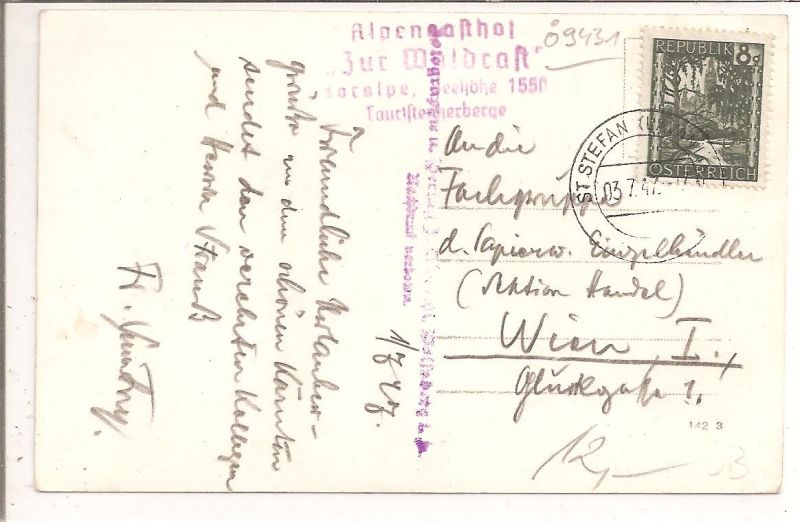 Alpengasthof
"Zur Waldrast"
Koralpe, Seehöhe 1550
Touristenherberge
Ö9431
REPUBLIK 8g
ÖSTERREICH
ST STEFAN
03.7.47
Freundliche Urlauber-
grüsse aus dem schönen Kärnten
sendet den verehrten Kollegen
und Herrn Strauß
1/7 47.
Nachdruck verboten
An die
Fachgruppe
d. Papierw. Einzelhändler
(Sektion Handel)
Wien I.,
Glückgasse 1.
142 3